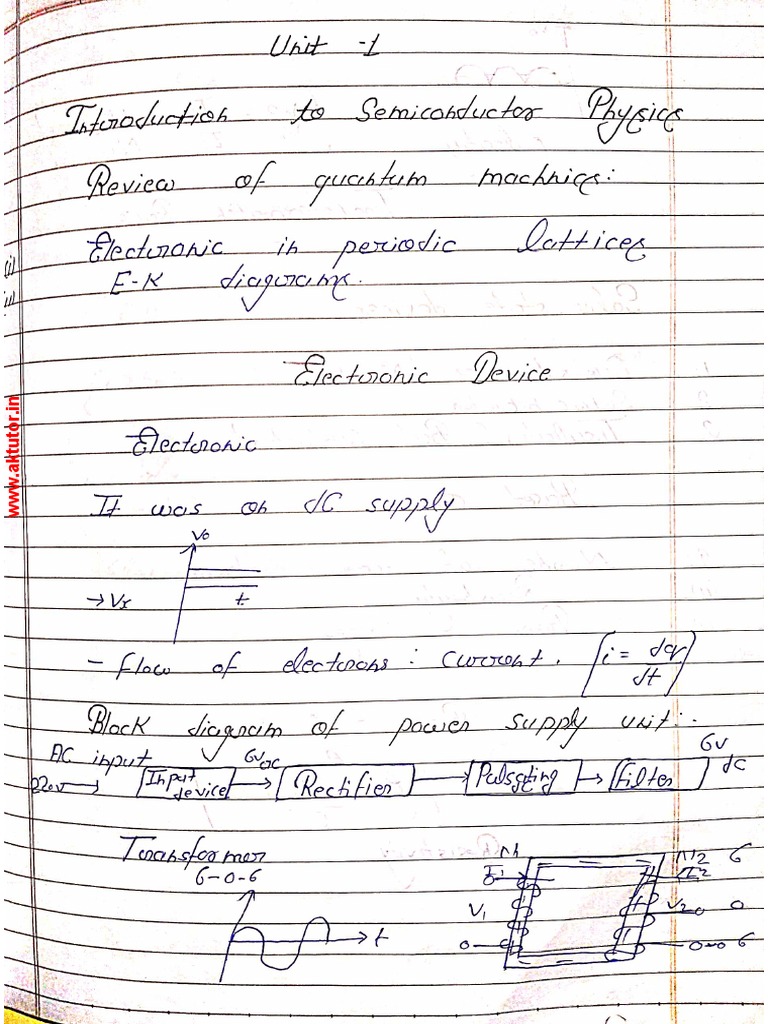 Unit -1
Introduction to Semiconductor Physics
Review of quantum machnics:
Electronic in periodic lattices
E-K diagrams.
Electronic Device
Electronic
www.aktutor.in
It was on dC supply
Vo
→Vx t
- flow of electrons : current. [i = dq/dt]
Block diagram of power supply unit:
AC input 6v ac 6v
220v → Input device → Rectifier → Pulsating → filter dc
Transformer
6-0-6
N1 N2 6
I1 I2
V1 V2 0 0
t
0 0-0 6